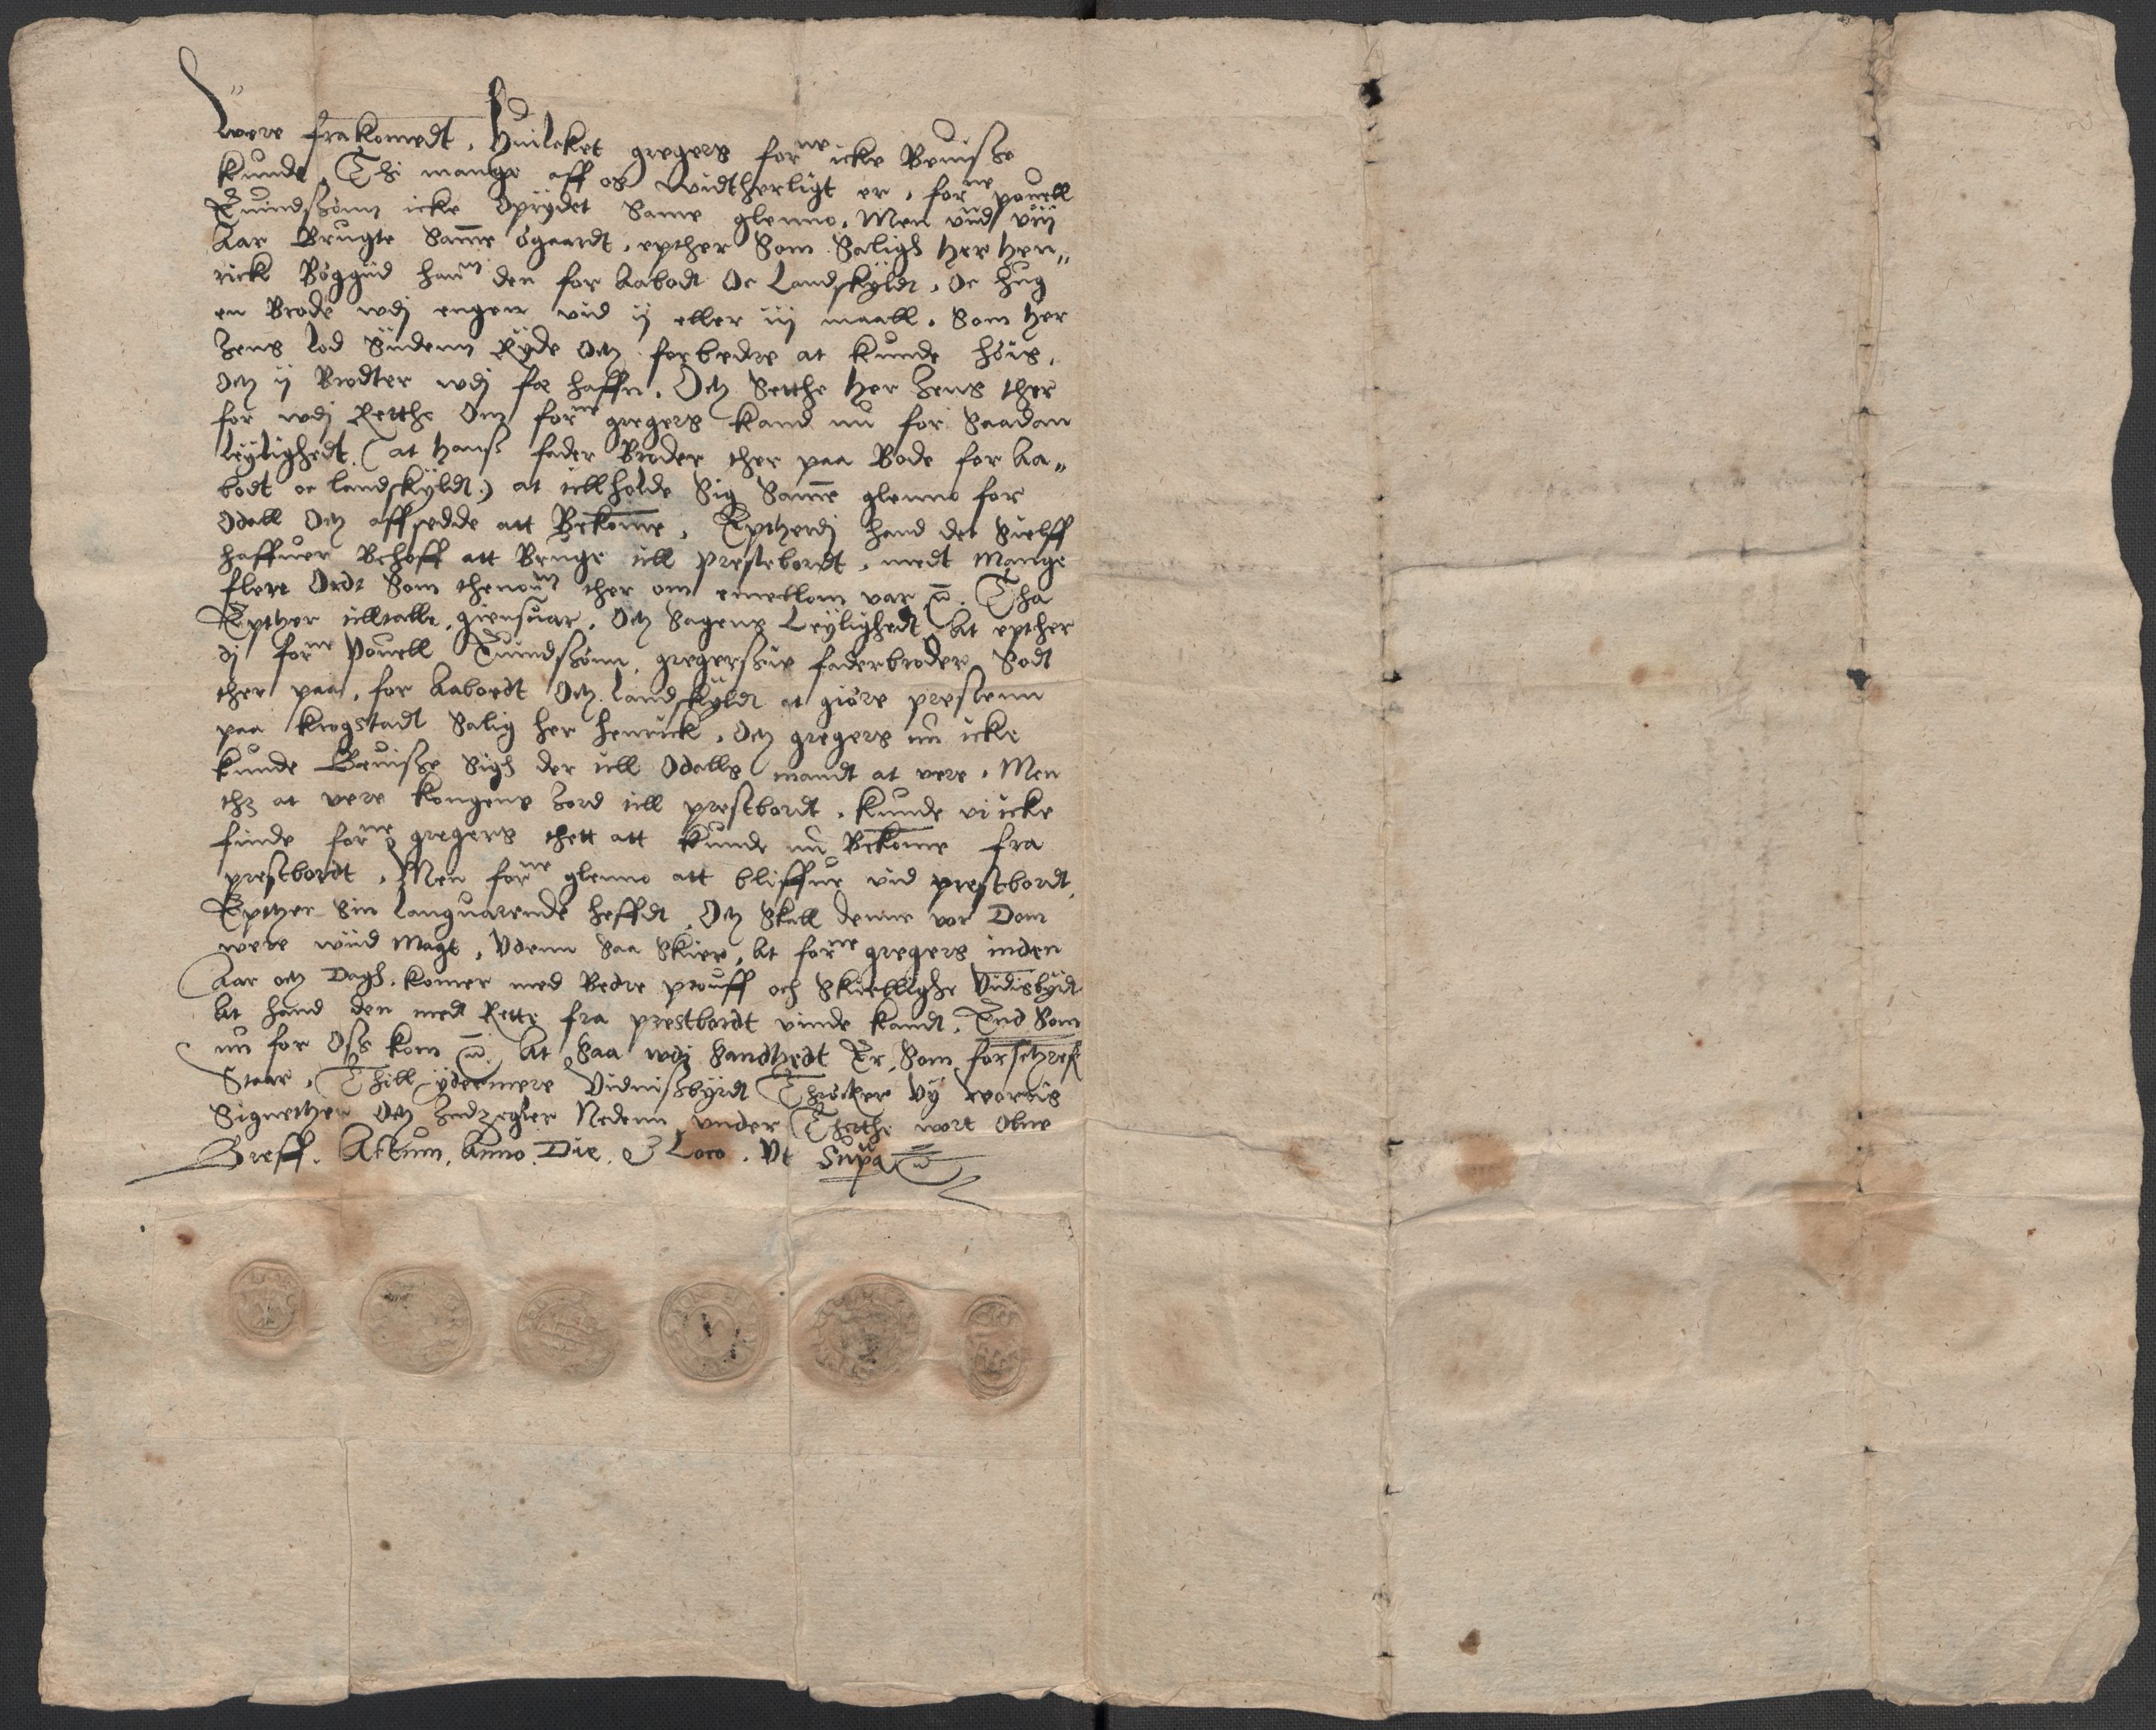 were frakomedt, Huilcket gregers forne icke Beuisße
kunde, Thi mange aff os widtherligt er, forne pouell
Euindsßønn icke oprydet Same glenno, Men vud viij
Aar Brugte Same ögaardt, epther Som Saligh Her Hen„
rick Böggüd hanm den for Aabodt Oc Landskyldt, Oc hug
en Brode wdj engen vid ij eller iij maall, Som Her
Jens lod Sidenn Ryde Och forbedre at kunde höis,
Och ij Brodter wdj fæ haffn, Och Setthe Her Jens ther
for wdj Retthe Om forne gregers kand nu for Saadan
leylighedt (at Hans fader Broder ther paa Bode for Aa„
bodt oc landskyldt) at till holde Sig Same glenno for
Odell Och affsedde att Bekome, Eptherdj hand det Sielff
haffuer Behoff att Bruge till prestebordt, medt Mange
flere Ordt Som thenonm ther om emellom var &c. Tha
Epther tilltalle, giensuar, Och Sagens Leylighedt, At epther
dj forne Pouell Euindsßønn, gregersßis faderbroder Sodt
ther paa, for Aabordt Och landskyldt at giöre prestenn
paa krogstadt Salig her henrick, Och gregers nu icke
kunde Beuisße Sigh der till Odells mandt at vere, Men
thz at vere kongens Jord till prestbordt, kunde vi icke
finde forne gregers thett att kunde nu Bekome fra
prestbordt, Men forne glenno att bliffue vid prestbordt,
Epther Sin languarende heffdt, Och Skall denne vor Dom
were wiid Magt, Vdenn Saa Skier, At forne gregers inden
Aar och Dagh, komer med Bedre prouff och Skiellighe Vidisbyd
At hand den medt Rette fra prestbordt vinde kandt, End Som
nu for Oss kom &c. At Saa wdj Sandhedt Er, Som forschreff
Staar, Thill ydermere Vidnisbyrdt Thröcker Vy worris
Signether Och Indzegler Nedenn vnder Thette wort Obne
Breff. Actum, Anno, Die, & Loco, Vt Supra &c.